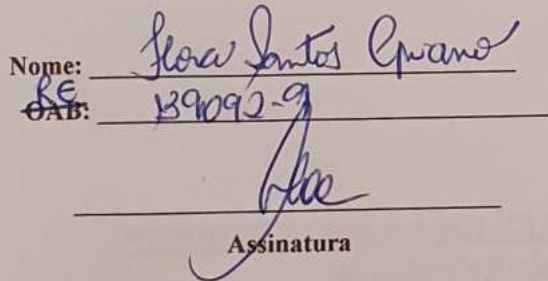 Nome: Flora Santos
RE
OAB: 139092-9
Assinatura